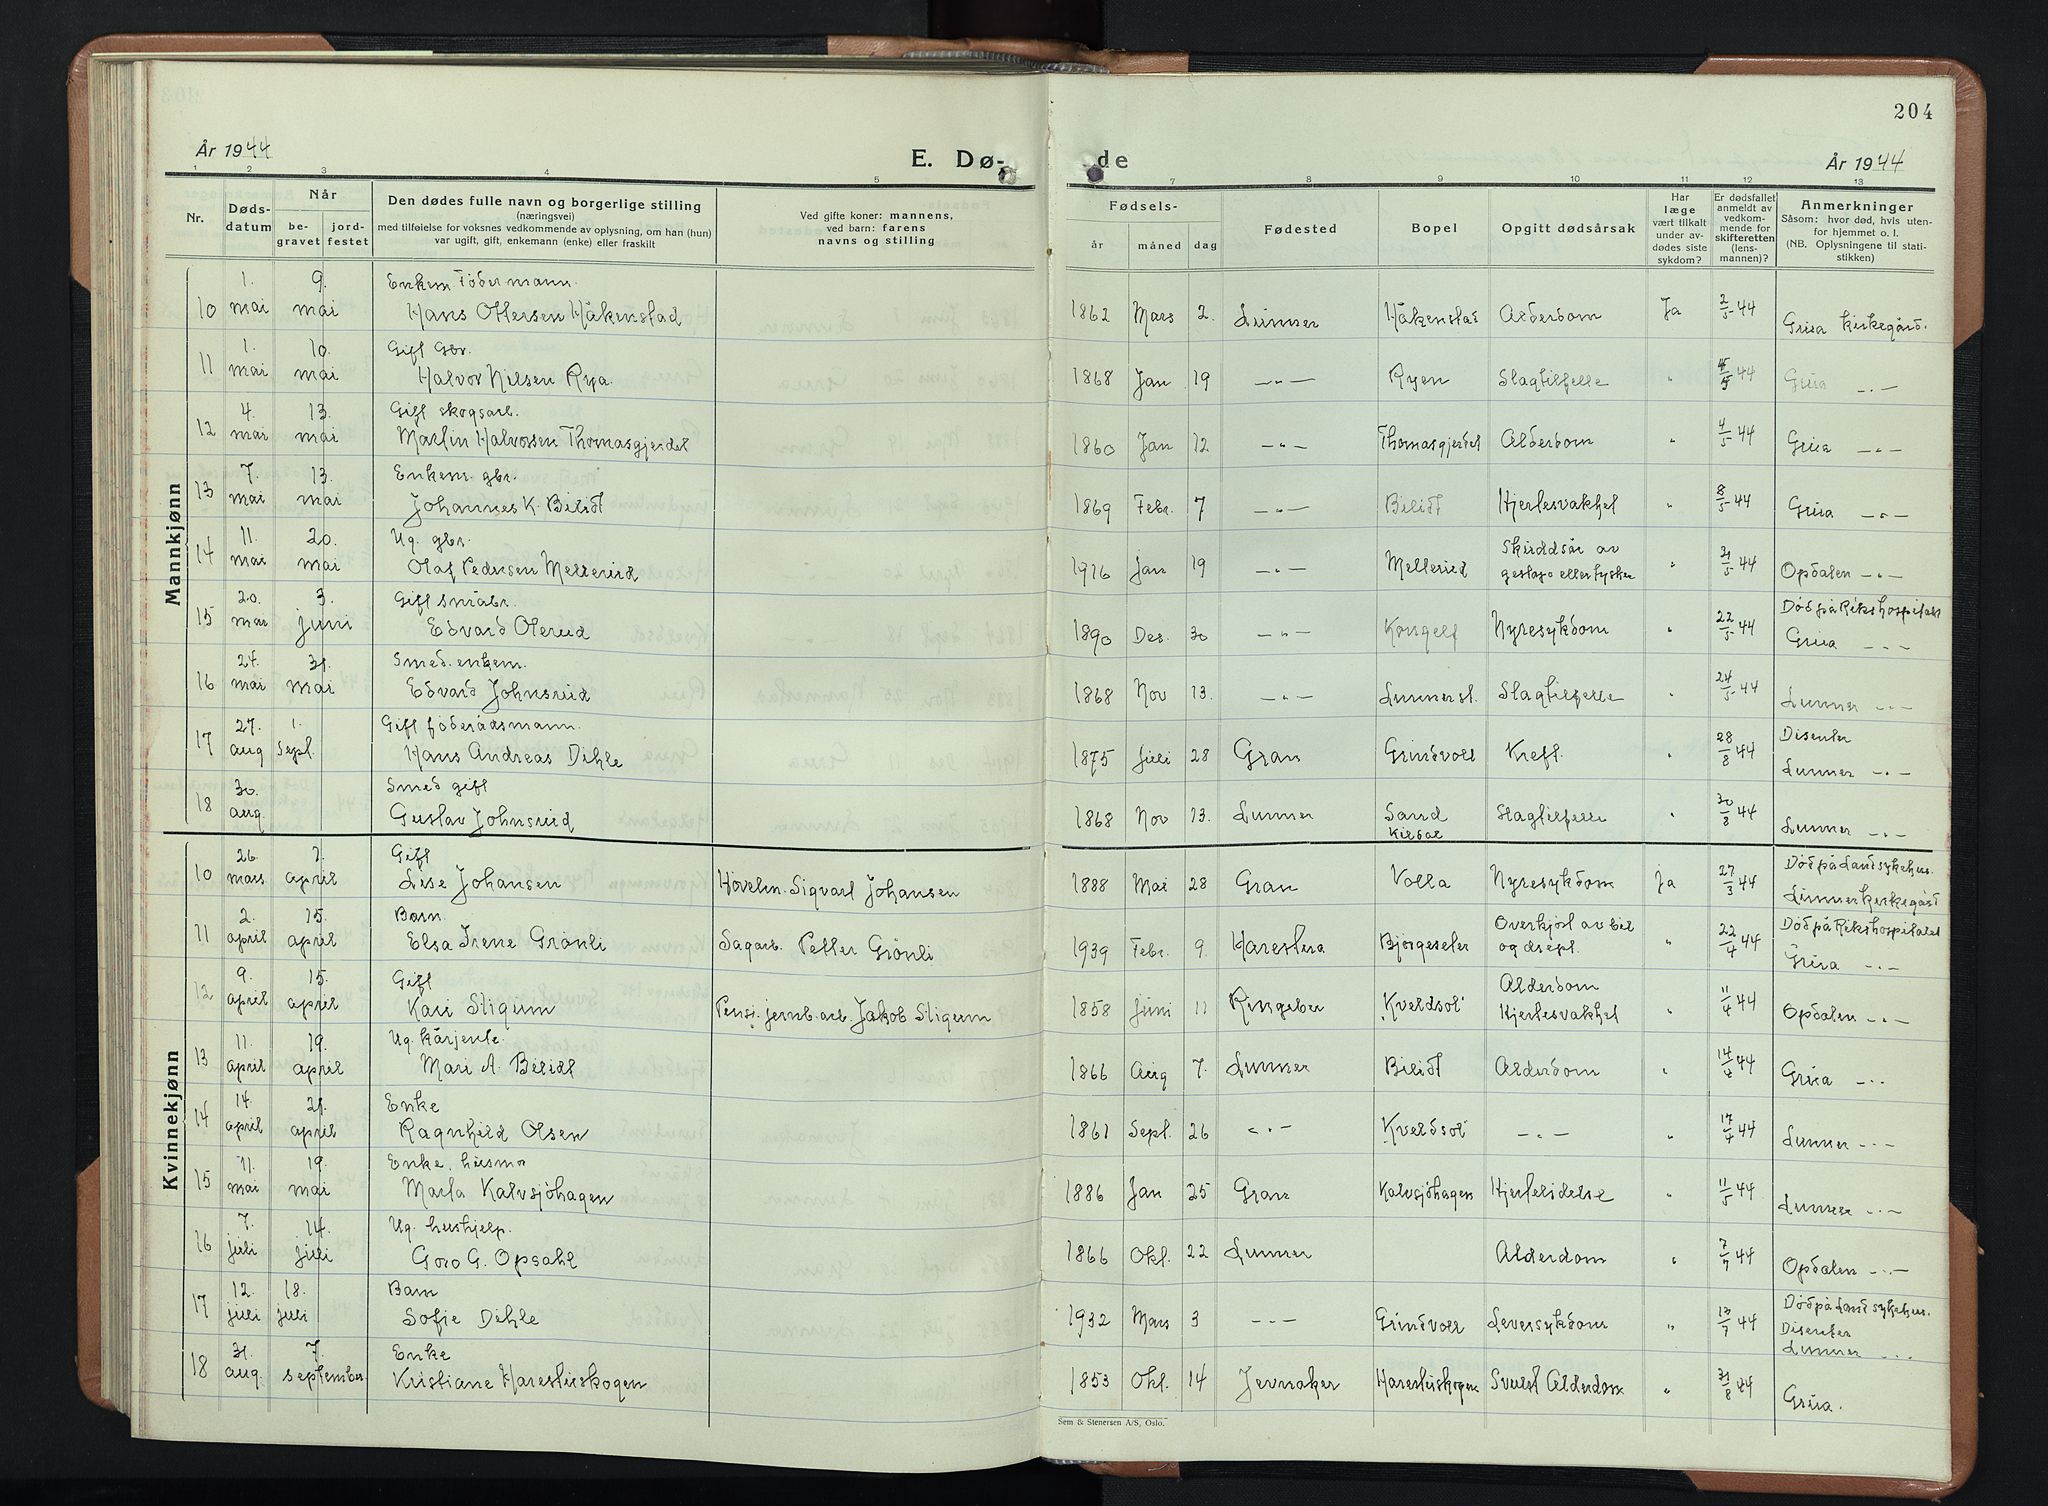 204
År 1944
E. Dø-
de
År 1944
1 2 3 4 5 7 8 9 10 11 12 13
Nr.
Døds-
datum
Når
be-
gravet
jord-
festet
Den dødes fulle navn og borgerlige stilling
(næringsvei)
med tilføielse for voksnes vedkommende av oplysning, om han (hun)
var ugift, gift, enkemann (enke) eller fraskilt
Ved gifte koner: mannens,
ved barn: farens
navns og stilling
Fødsels-
år
måned
dag
Fødested
Bopel
Opgitt dødsårsak
Har
læge
vært tilkalt
under av-
dødes siste
sykdom?
Er dødsfallet
anmeldt av
vedkom-
mende for
skifteretten
(lens-
mannen)?
Anmerkninger
Såsom: hvor død, hvis uten-
for hjemmet o. l.
(NB. Oplysningene til stati-
stikken)
Mannkjønn
10 1. mai 9. mai Enkem Föder mann. Hans Ottersen Håkenstad 1862 Mars 2. Lunner Håkenstad Alderdom Ja 2/5 44 Grua kirkegård.
11 1. mai 10. mai Gift Gbr. Halvor Nilsen Rya. 1868 Jan 19 —"— Ryen Slagtilfelle " 44 Grua —"—
12 4. mai 13. mai Gift skogsarb. Martin Halvorsen Thomasgjerdet 1860 Jan 12 —"— Thomasgjerdet Alderdom " 4/5 44 Grua —"—
13 7. mai 13. mai Enkem. gbr. Johannes K. Bilidt 1869 Febr. 7 —"— Bilidt Hjertesvakhet " 8/5 44 Grua —"—
14 11. mai 20. mai Ug. gbr. Olaf Pedersen Mellerud 1916 Jan 19 —"— Mellerud Skuddsår av gestapo eller tysker " 44 Opdalen —"—
15 20. mai 3. juni Gift småbr. Edvard Olerud 1890 Des. 30 —"— Nyresykdom " 22/5 44 Död på Rikshospitalet Grua —"—
16 24. mai 31. mai Smed. enkem. Edvard Johnsrud 1868 Nov 13. —"— Lunner st. Slagtilfelle " 24/5 44 Lunner —"—
17 27. aug 1. sept. Gift föderådsmann. Hans Andreas Dihle 1875 Juli 28 Gran Grindvoll Kreft. " 28/8 44 Disenter Lunner —"—
18 30. aug. Smed gift Gustav Johnsrud 1868 Nov 13. Lunner Sand Slagtilfelle " 30/8 44 Lunner —"—
Kvinnekjønn
10 26 mars 2. april Gift Lise Johansen Hövelm. Sigvart Johansen 1888 Mai 28 Gran Volla Nyresykdom Ja 27/3 44 Död på Landsykehus. Lunner kirkegård
11 2. april 15. april Barn. Elsa Irene Grönli Sagarb. Petter Grönli 1939 Febr. 9. Harestua Björgeseter Overkjört av bil og dsept. " 22/4 44 Död på Rikshospitalet Grua —"—
12 9. april 15. april Gift Kari Stigum Pensj. jernb. arb. Jakob Stigum 1858 Juni 11 Ringebu Kveldsol Alderdom Hjertesvakhet 11/4 44 Opdalen —"—
13 11. april 19. april Ug. kårjente. Mari A. Bilidt 1866 Aug 7. Lunner Bilidt Alderdom " 14/4 44 Grua —"—
14 14. april 21. april Enke Ragnhild Olsen 1861 Sept. 26 —"— Kveldsol —"— " 17/4 44 Lunner —"—
15 11. mai 19. mai Enke, husmo Marta Kalvsjöhagen 1886 Jan 25 Gran Kalvsjöhagen Hjertelidelse " 11/5 44 Lunner —"—
16 7. juli 14. juli Ug. hushjelp. Goro G. Opsahl 1866 Okt. 22 Lunner Alderdom " 7/7 44 Opdalen —"—
17 12. juli 18. juli Barn Sofie Dihle 1932 Mars 3 —"— Grindvoll Leversykdom " 13/7 44 Död på Landsykehus. Disenter Lunner —"—
18 31. aug. 7. september Enke Kristiane Harestuskogen 1853 Okt. 14 Jevnaker Harestuskogen Alderdom " 31/8 44 Grua.
Sem & Stenersen A/S, Oslo.